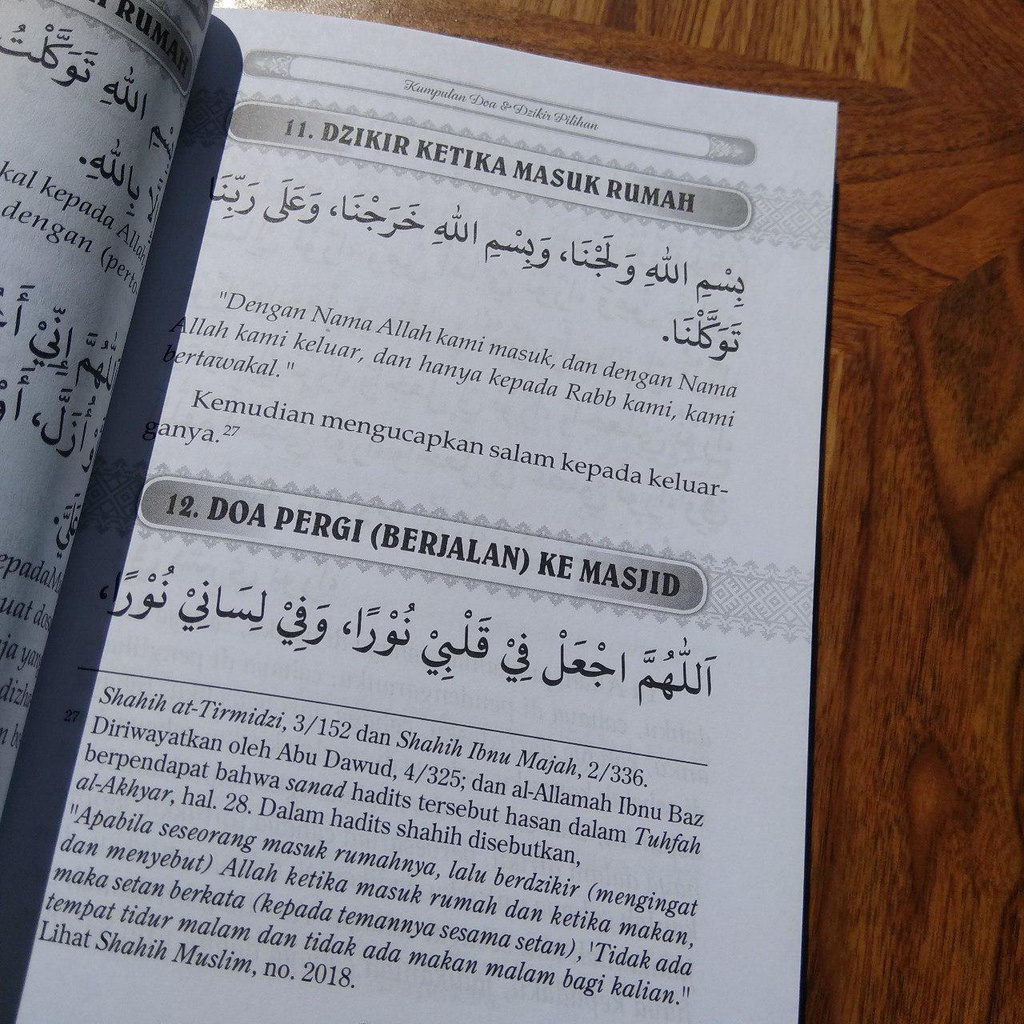 RUMAH
اللهِ تَوَكَّلْتُ
إِلَّا بِاللهِ.
kal kepada Allah
dengan (perto
Kumpulan Doa & Dzikir Pilihan
11. DZIKIR KETIKA MASUK RUMAH
بِسْمِ اللهِ وَلَجْنَا، وَبِسْمِ اللهِ خَرَجْنَا، وَعَلَى رَبِّنَا
تَوَكَّلْنَا.
"Dengan Nama Allah kami masuk, dan dengan Nama
Allah kami keluar, dan hanya kepada Rabb kami, kami
bertawakal."
Kemudian mengucapkan salam kepada keluar-
ganya.27
12. DOA PERGI (BERJALAN) KE MASJID
اَللّٰهُمَّ اجْعَلْ فِيْ قَلْبِيْ نُوْرًا، وَفِيْ لِسَانِيْ نُوْرًا،
Shahih at-Tirmidzi, 3/152 dan Shahih Ibnu Majah, 2/336.
27 Diriwayatkan oleh Abu Dawud, 4/325; dan al-Allamah Ibnu Baz
berpendapat bahwa sanad hadits tersebut hasan dalam Tuhfah
al-Akhyar, hal. 28. Dalam hadits shahih disebutkan,
"Apabila seseorang masuk rumahnya, lalu berdzikir (mengingat
dan menyebut) Allah ketika masuk rumah dan ketika makan,
maka setan berkata (kepada temannya sesama setan), 'Tidak ada
tempat tidur malam dan tidak ada makan malam bagi kalian."
Lihat Shahih Muslim, no. 2018.